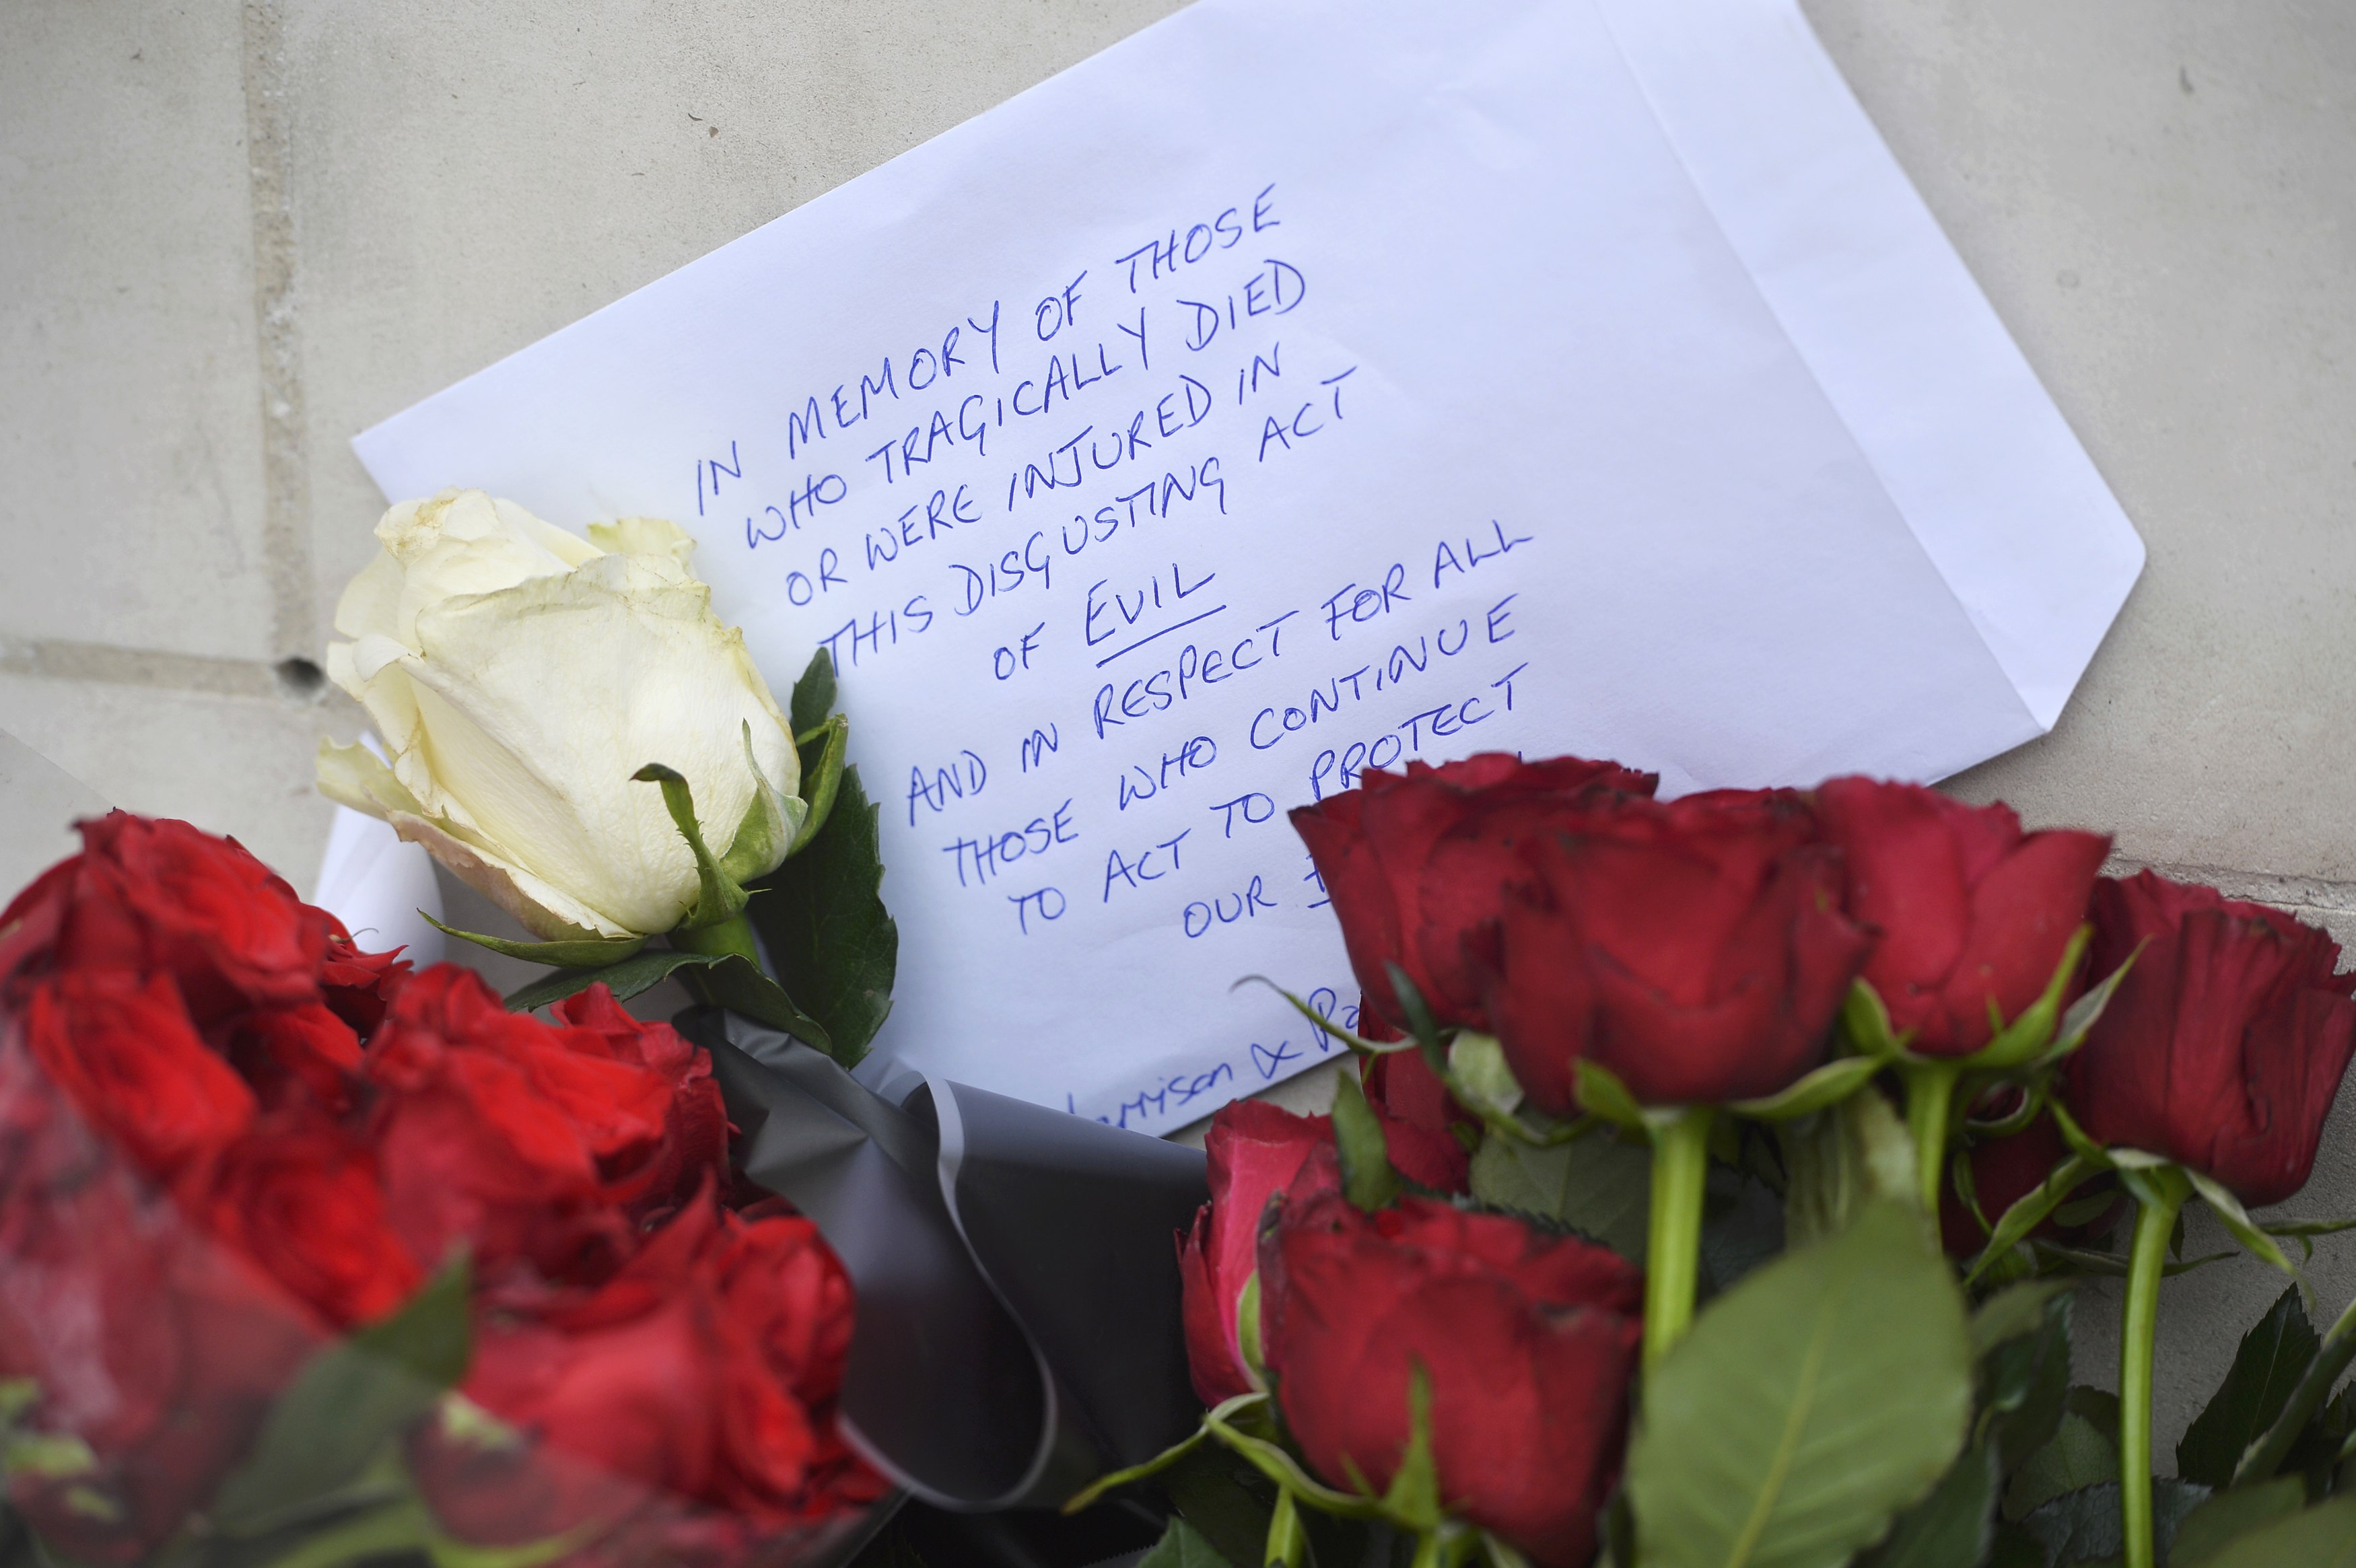 IN MEMORY OF THOSE
WHO TRAGICALLY DIED
OR WERE INJURED IN
THIS DISGUSTING ACT
OF EVIL
AND IN RESPECT FOR ALL
THOSE WHO CONTINUE
TO ACT TO PROTECT
OUR